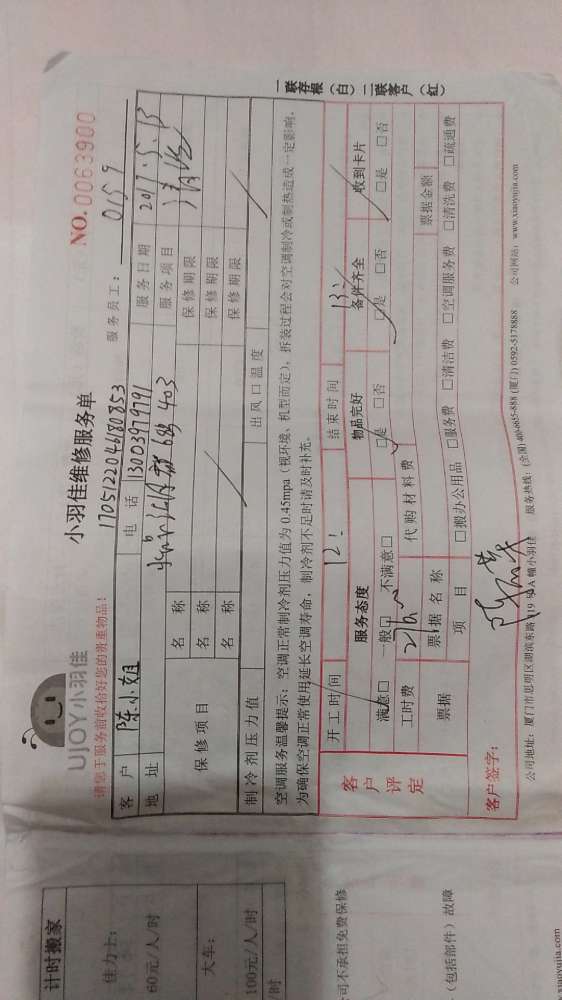 UJOY小羽佳
小羽佳维修服务单
NO. 0063900
请您于服务前收拾好您的贵重物品!
170512204680853
服务员工: 0159
客户 陈小姐 电话 13003979791 服务日期 2017.5.13
地址 403 服务项目 清洗
保修项目
名称 保修期限
名称 保修期限
名称 保修期限
制冷剂压力值 出风口温度
空调服务温馨提示:空调正常制冷剂压力值为0.45mpa(视环境、机型而定),拆装过程会对空调制冷或制热造成一定影响。
为确保空调正常使用延长空调寿命,制冷剂不足时请及时补充。
一联存根(白)二联客户(红)
客户评定
开工时间 12: 结束时间 13:
服务态度 物品完好 备件齐全 收到卡片
满意□ 一般□ 不满意□ □是 □否 □是 □否 □是 □否
工时费 代购材料费
票据 票据名称 票据金额
项目 □搬办公用品 □服务费 □清洁费 □空调服务费 □清洗费 □疏通费
客户签字:
公司地址:厦门市思明区湖滨东路319号A幢小羽佳 服务热线:(全国)400-8655-888 (厦门)0592-5178888 公司网站:www.xiaoyujia.com
计时搬家
佳力士:
60元/人/时
大车:
100元/人/时
时
司不承担免费保修
(包括部件)故障
xiaoyujia.com